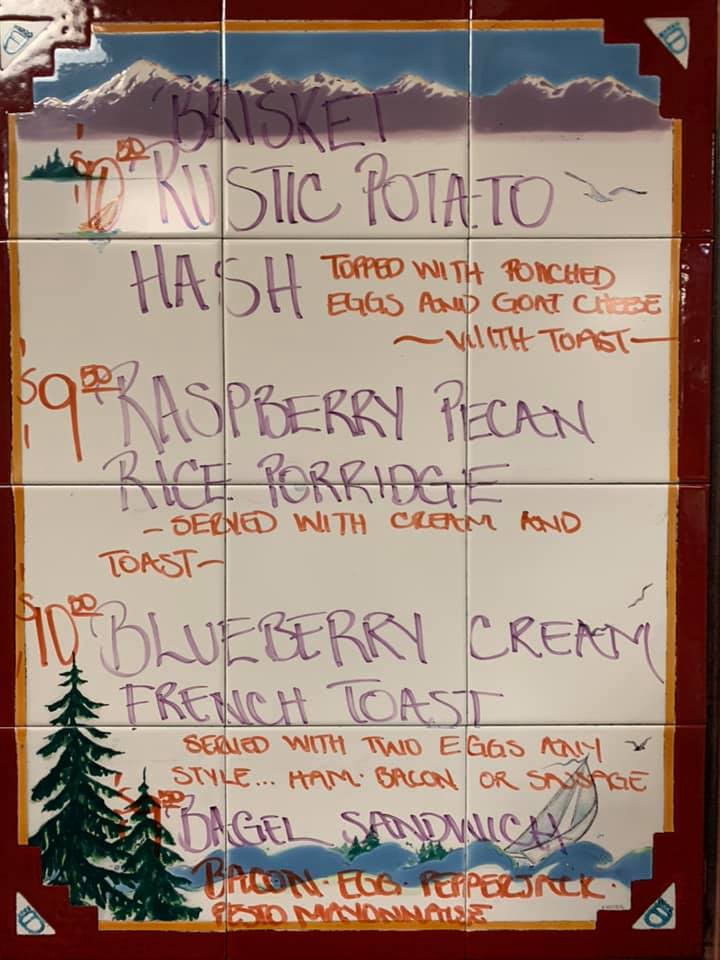 BRISKET
$10.50 RUSTIC POTATO
HASH TOPPED WITH POACHED
EGGS AND GOAT CHEESE
~WITH TOAST~
$9.50 RASPBERRY PECAN
RICE PORRIDGE
- SERVED WITH CREAM AND
TOAST~
$10.50 BLUEBERRY CREAM
FRENCH TOAST
SERVED WITH TWO EGGS ANY
STYLE... HAM · BACON OR SAUSAGE
BAGEL SANDWICH
BACON · EGG · PEPPERJACK ·
PESTO MAYONNAISE